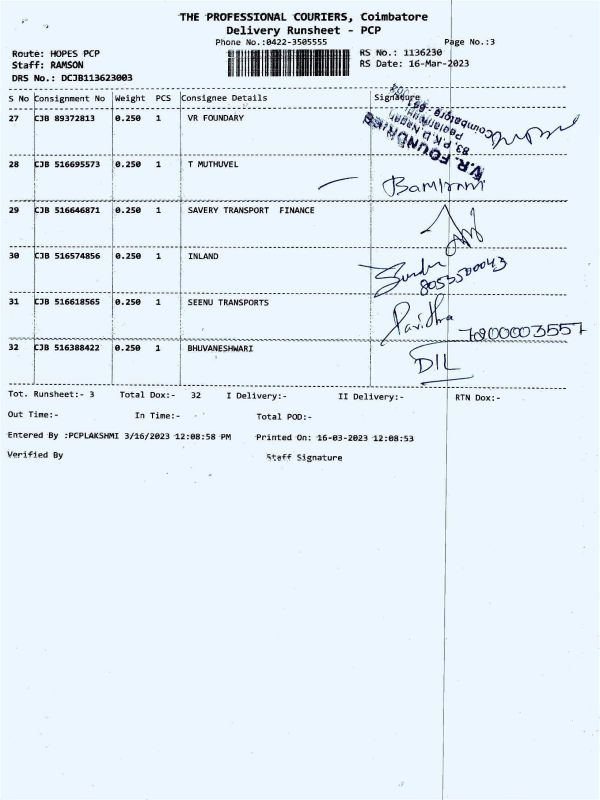 THE PROFESSIONAL COURIERS, Coimbatore
Delivery Runsheet - PCP
Phone No.:0422-3505555 Page No.:3
Route: HOPES PCP RS No.: 1136230
Staff: RAMSON RS Date: 16-Mar-2023
DRS No.: DCJB113623003
S No Consignment No Weight PCS Consignee Details Signature
27 CJB 89372813 0.250 1 VR FOUNDARY
V.R. FOUNDRIES
83, P.K.D. Nagar
Peelamedu
Coimbatore - 641 004
28 CJB 516695573 0.250 1 T MUTHUVEL
29 CJB 516646871 0.250 1 SAVERY TRANSPORT FINANCE
30 CJB 516574856 0.250 1 INLAND
31 CJB 516618565 0.250 1 SEENU TRANSPORTS
Pavithra
32 CJB 516388422 0.250 1 BHUVANESHWARI
DIL
Tot. Runsheet:- 3 Total Dox:- 32 I Delivery:- II Delivery:- RTN Dox:-
Out Time:- In Time:- Total POD:-
Entered By :PCPLAKSHMI 3/16/2023 12:08:58 PM Printed On: 16-03-2023 12:08:53
Verified By Staff Signature